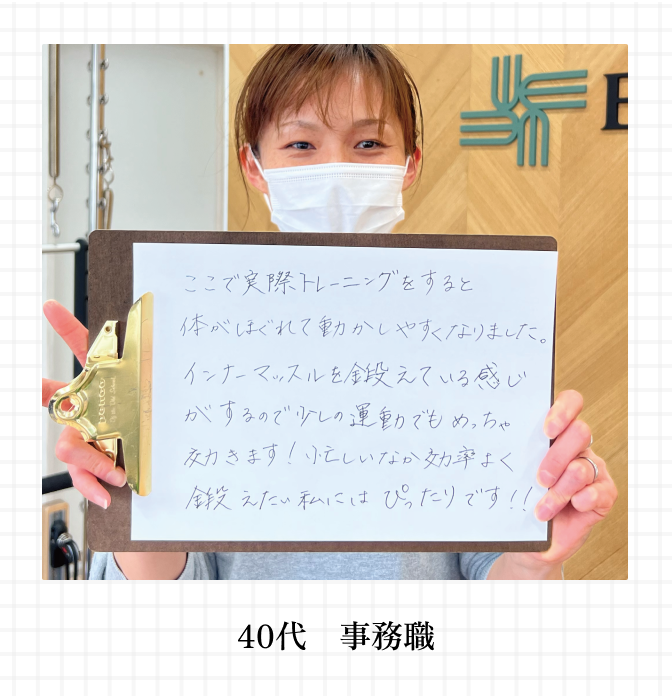 ここで実際トレーニングをすると
体がほぐれて動かしやすくなりました。
インナーマッスルを鍛えている感じ
がするので少しの運動でもめっちゃ
効きます！忙しいなか効率よく
鍛えたい私にはぴったりです！！
40代　事務職